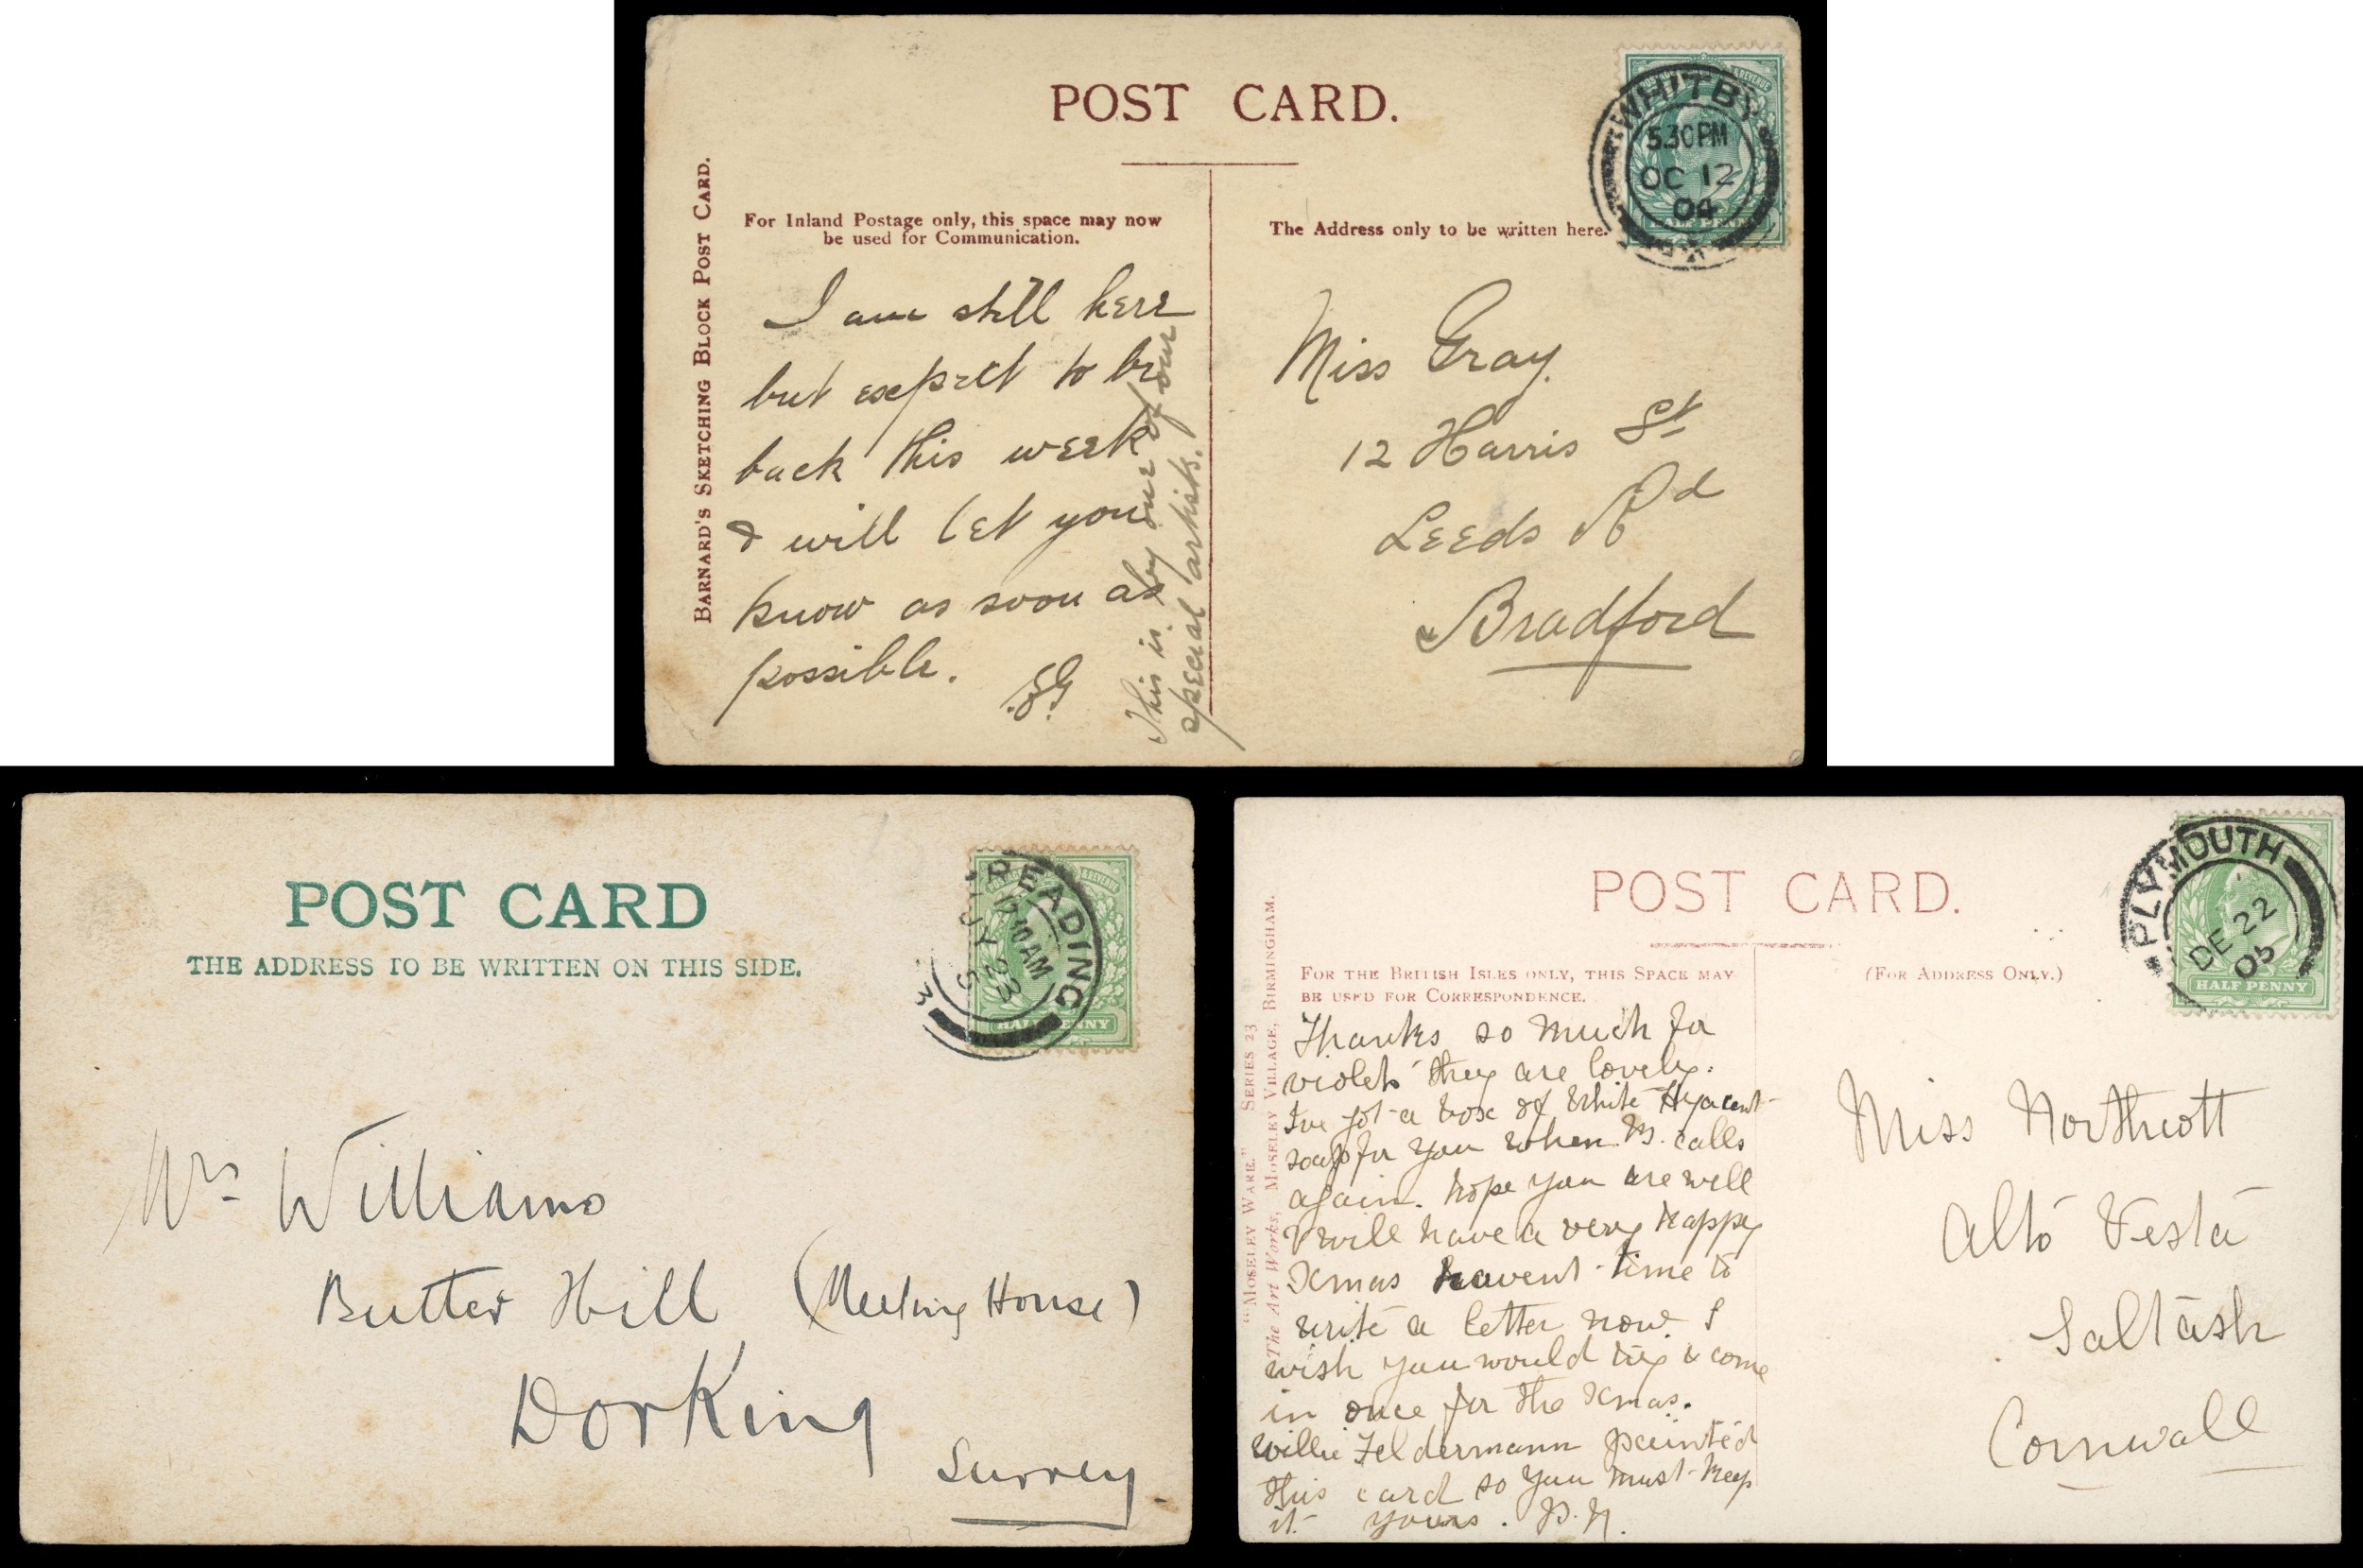 POST CARD.
BARNARD'S SKETCHING BLOCK POST CARD.
For Inland Postage only, this space may now
be used for Communication.
I am still here
but expect to be
back this week
& will let you
know as soon as
possible.
EG
This is by one of our
special artists.
The Address only to be written here.
WHITBY
5.30 PM
OC 12
04
HALF PENNY
Miss Gray.
12 Harris St
Leeds Rd
Bradford
POST CARD
THE ADDRESS TO BE WRITTEN ON THIS SIDE.
READING
AM
JY 23
HALF PENNY
Mrs Williams
Butter Hill (Meeting House)
Dorking
Surrey
POST CARD.
"MOSELEY WARE." SERIES 23
The Art Works, MOSELEY VILLAGE, BIRMINGHAM.
FOR THE BRITISH ISLES ONLY, THIS SPACE MAY
BE USED FOR CORRESPONDENCE.
Thanks so much for
violets they are lovely.
I've got a box of White Hyacent
soap for you when calls
again. hope you are well
& will have a very happy
Xmas havent time to
write a letter now. I
wish you would try & come
in once for the Xmas.
Willie Feldermann painted
this card so you must keep
it yours.
(FOR ADDRESS ONLY.)
PLYMOUTH
DE 22
05
HALF PENNY
Miss Northcott
Alto Vesta
Saltash
Cornwall